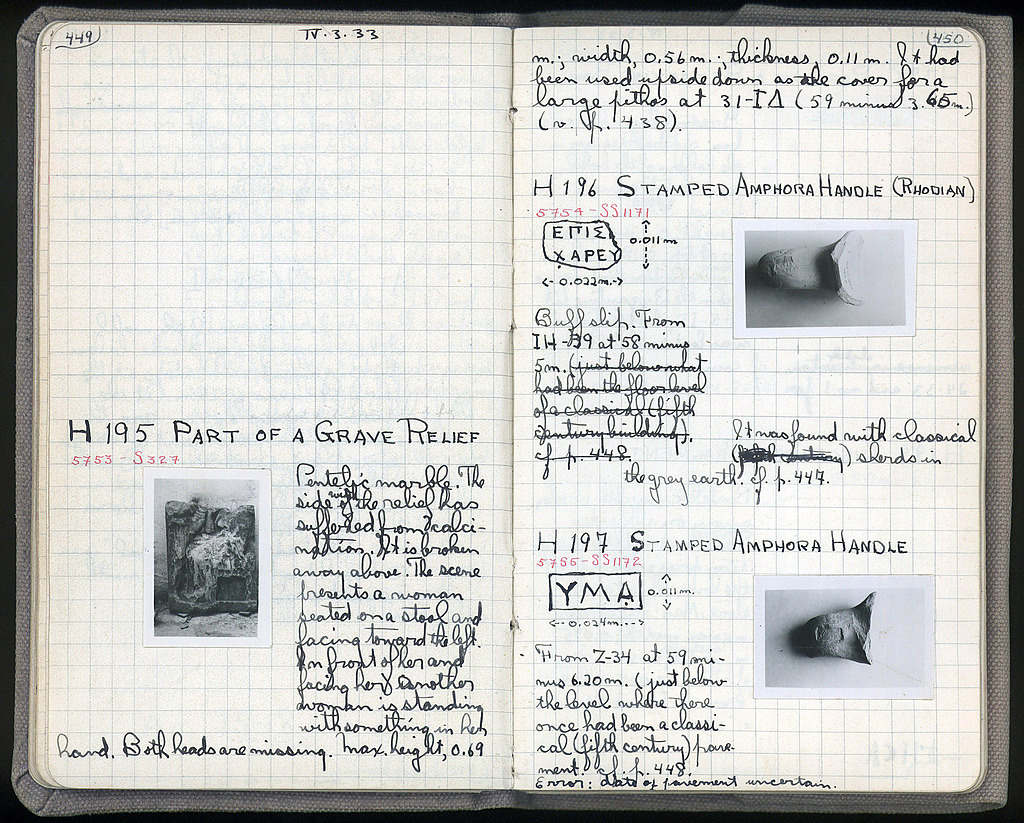 449
IV.3.33
H 195 PART OF A GRAVE RELIEF
5753-S327
Pentelic marble. The
side with the relief has
suffered from calci-
nation. It is broken
away above. The scene
presents a woman
seated on a stool and
facing toward the left.
In front of her and
facing her another
woman is standing
with something in her
hand. Both heads are missing. Max. height, 0.69
450
m.; width, 0.56 m.; thickness, 0.11 m. It had
been used upside down as the cover for a
large pithos at 31-ΙΔ (59 minus 3.65 m.)
(v. p. 438).
H 196 STAMPED AMPHORA HANDLE (RHODIAN)
5754-SS1171
ΕΠΙΣ
ΧΑΡΕΥ
0.011 m
0.022 m.
Buff slip. From
ΙΗ-39 at 58 minus
5 m. (just below what
had been the floor level
of a classical (fifth
century building).
cf. p. 448.
It was found with classical
(fifth century) sherds in
the grey earth. cf. p. 447.
H 197 STAMPED AMPHORA HANDLE
5755-SS1172
ΥΜΑ
0.011 m.
0.024 m.
From Z-34 at 59 mi-
nus 6.20 m. (just below
the level where there
once had been a classi-
cal (fifth century) pave-
ment. cf. p. 448.
Error: date of pavement uncertain.